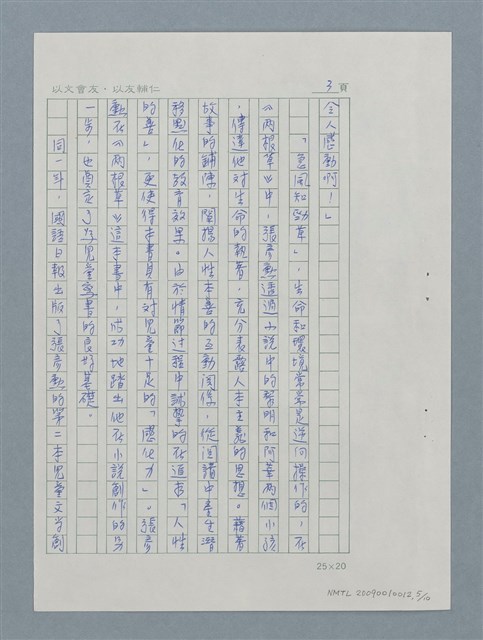 以文會友,以友輔仁
3頁
令人感動啊!」
「急風知勁草」,生命和環境常常是逆向操作的,在
《兩根草》中,張彥勳透過小說中的黎明和阿華兩個小孩
,傳達他對生命的執著,充分表露人本主義的思想。藉著
故事的鋪陳,闡揚人性本善的互動關係,從閱讀中產生潛
移默化的教育效果。由於情節過程中誠摯的在追求「人性
的善」,更使得本書具有對兒童十足的「感化力」。張彥
勳在《兩根草》這本書中,成功地踏出他在小說創作的另
一步,也奠定了好兒童讀書的良好基礎。
同一年,國語日報出版了張彥勳的第二本兒童文學創
25×20
NMTL 20090010012 5/10